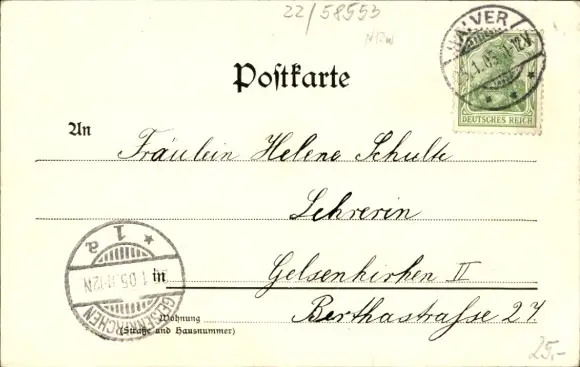 22/58553
HALVER
1.05.
DEUTSCHES REICH
Postkarte
An Fräulein Helene Schulte
Lehrerin
in Gelsenkirchen II
Wohnung Berthastraße 27
(Straße und Hausnummer)
GELSENKIRCHEN
1.05. 11-12N
* 1 a
25,-